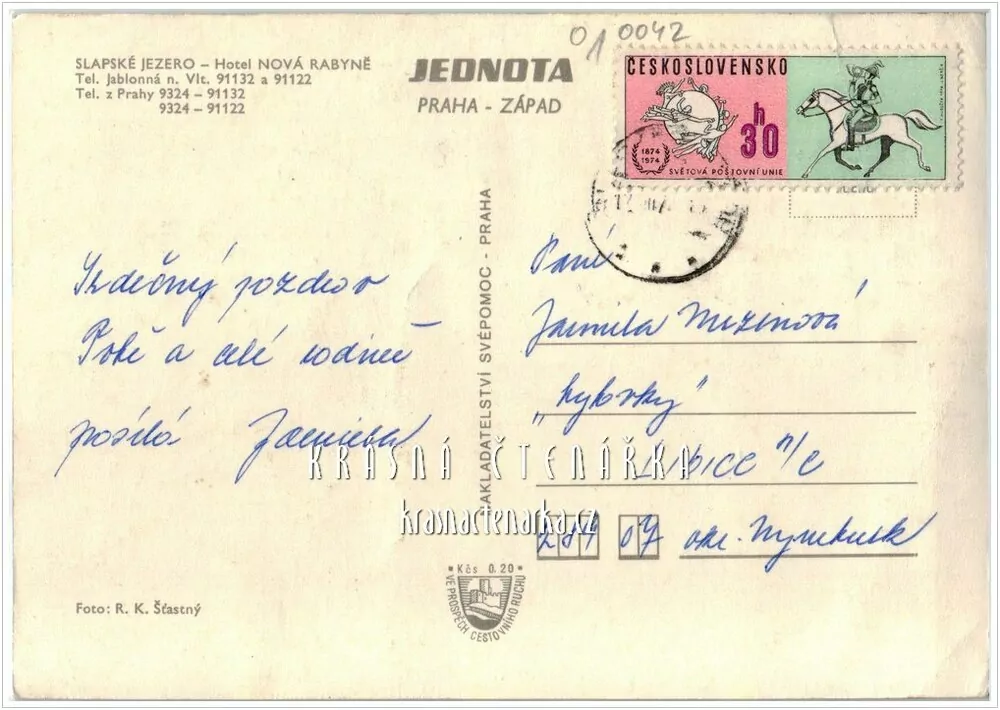 0 1 0042
SLAPSKÉ JEZERO – Hotel NOVÁ RABYNĚ
Tel. Jablonná n. Vlt. 91132 a 91122
Tel. z Prahy 9324 – 91132
9324 – 91122
JEDNOTA
PRAHA - ZÁPAD
ČESKOSLOVENSKO
h
30
1874
1974
SVĚTOVÁ POŠTOVNÍ UNIE
Srdečný pozdrav
a celé rodině
posílá
NAKLADATELSTVÍ SVÉPOMOC - PRAHA
Paní
Jarmila
LIBICE n/c
289 07 okr. Nymburk
KRÁSNÁ ČTENÁŘKA
krasnactenarka.cz
Kčs 0.20
VE PROSPĚCH CESTOVNÍHO RUCHU
Foto: R. K. Šťastný